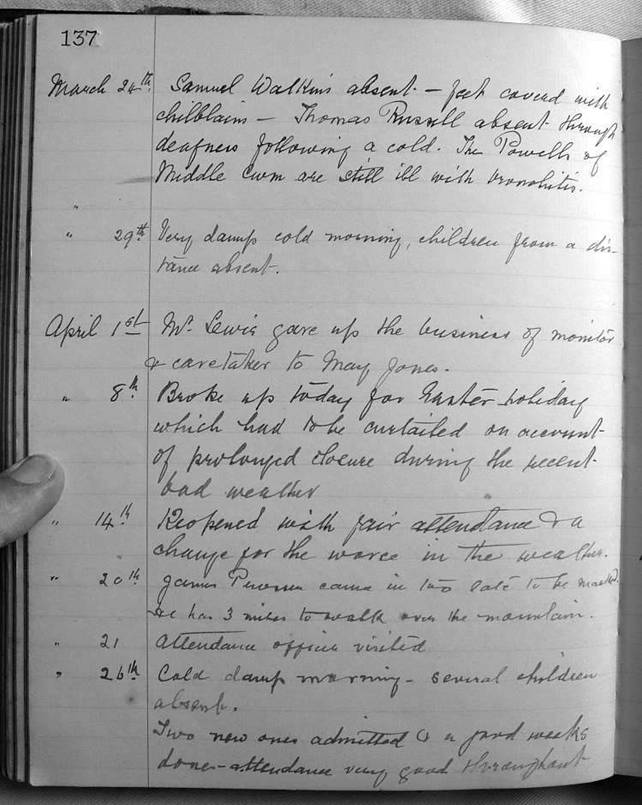 137
March 24th Samuel Watkins absent - feet covered with
chilblains - Thomas Russell absent through
deafness following a cold. The Powells of
Middle Cwm are still ill with bronchitis.
"
" 29th Very damp cold morning, children from a dis-
tance absent.
April 1st Mr Lewis gave up the business of monitor
& caretaker to May Jones.
" 8th Broke up today for Easter holiday
which had to be curtailed on account
of prolonged closure during the recent
bad weather
" 14th Reopened with fair attendance & a
change for the worse in the weather.
" 20th James came in too late to be marked.
He has 3 miles to walk over the mountain.
" 21 Attendance officer visited
" 26th Cold damp morning - several children
absent.
Two new ones admitted & a good weeks
done - attendance very good throughout